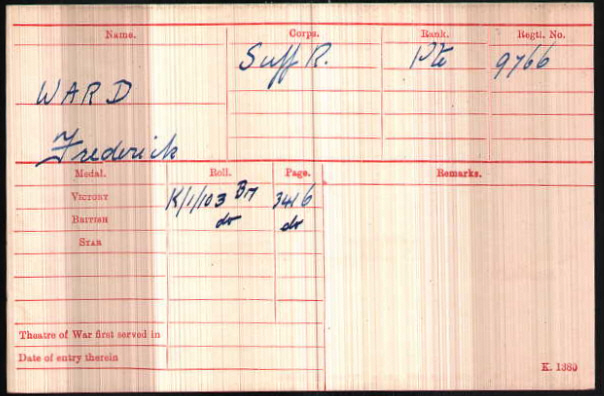 Name. Corps. Rank. Regtl. No.
WARD Suff R. Pte 9766
Frederick
Medal. Roll. Page. Remarks.
VICTORY K/1/103 B17 3416
BRITISH do do
STAR
Theatre of War first served in
Date of entry therein
K. 1380